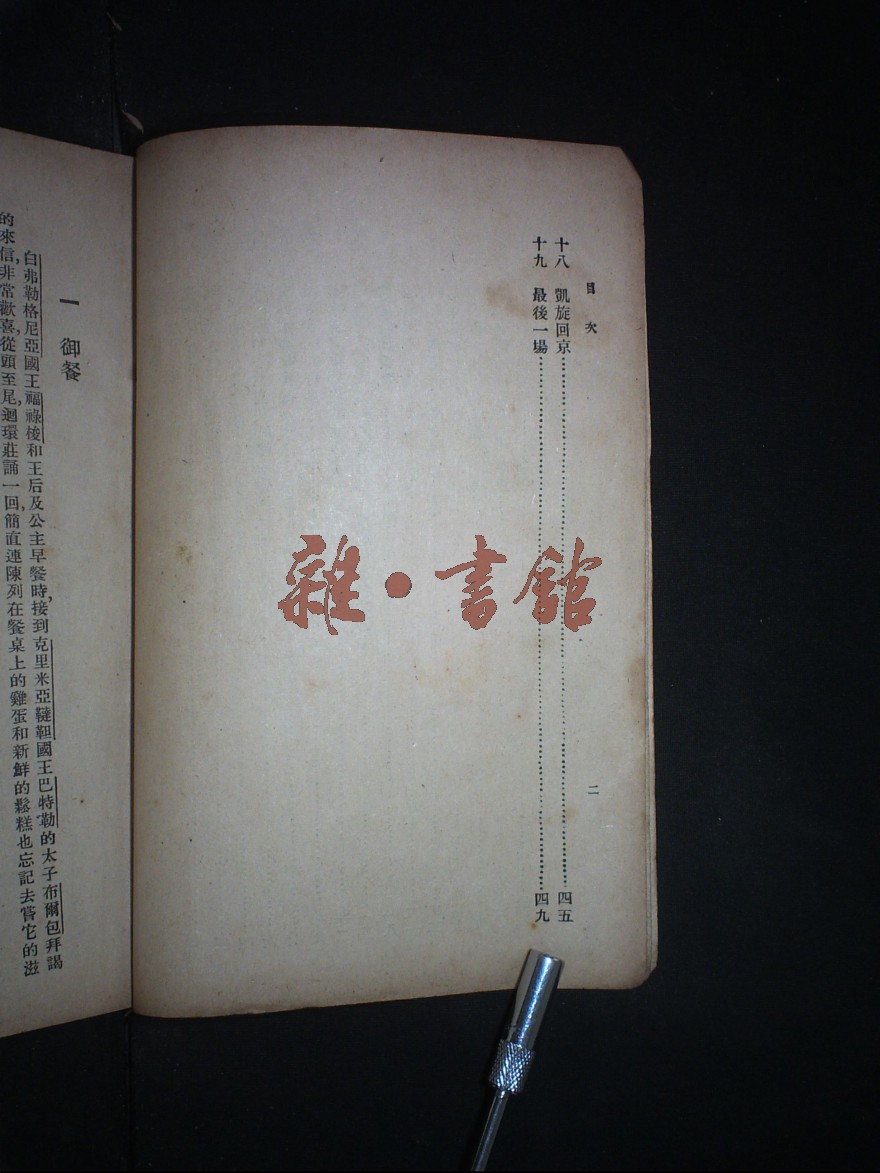 目次
十八　凱旋回京……四五
十九　最後一場……四九
二
一　御餐
白弗勒格尼亞國王福祿梭和王后及公主早餐時，接到克里米亞韃靼國王巴特勒的太子布爾包拜謁
的來信，非常歡喜，從頭至尾，迴環莊誦一回，簡直連陳列在餐桌上的雞蛋和新鮮的鬆糕也忘記去嘗它的滋
雜·書館